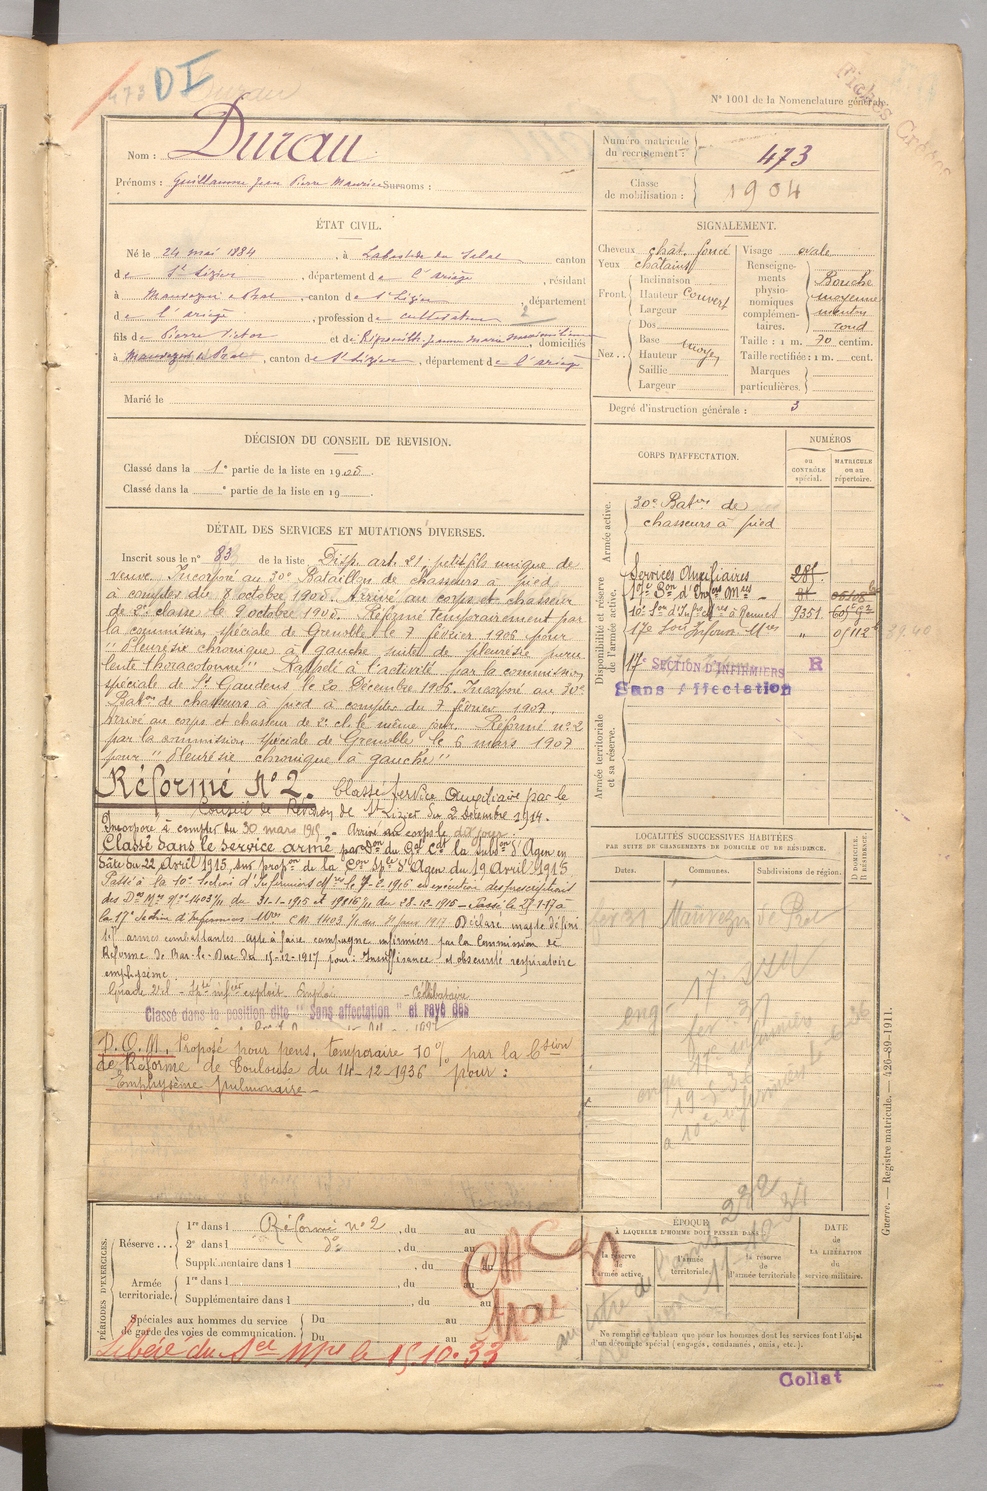 473 DI
N° 1001 de la Nomenclature générale.
Nom : Durau
Prénoms : Guillaume Jean Pierre Maurice Surnoms :
Numéro matricule du recrutement : 473
Classe de mobilisation : 1904
ÉTAT CIVIL.
Né le 24 mai 1884, à Labastide du Salat, canton
de St Lizier, département de l'Ariège, résidant
à Mauvezin de Prat, canton de St Lizier, département
de l'Ariège, profession de cultivateur 2
fils de Pierre Victor et de jeanne Marie, domiciliés
à Mauvezin de Prat, canton de St Lizier, département de l'Ariège
Marié le
SIGNALEMENT.
Cheveux chât. foncé
Yeux châtains
Front. Inclinaison
Hauteur couvert
Largeur
Nez. Dos
Base moyen
Hauteur
Saillie
Largeur
Visage ovale
Renseignements physionomiques complémentaires. Bouche moyenne menton rond
Taille : 1 m. 70 centim.
Taille rectifiée : 1 m. cent.
Marques particulières.
Degré d'instruction générale : 3
DÉCISION DU CONSEIL DE REVISION.
Classé dans la 1e partie de la liste en 1905.
Classé dans la e partie de la liste en 19
CORPS D'AFFECTATION.
NUMÉROS
au CONTRÔLE spécial.
MATRICULE ou au répertoire.
Armée active.
30e Baton de
chasseurs à pied
Disponibilité et réserve de l'armée active.
Services Auxiliaires 285
10e Son d'Infres à Rennes 9351
17e Son Infirm. Mres " 
17e SECTION D'INFIRMIERS R
Sans Affectation
Armée territoriale et sa réserve.
DÉTAIL DES SERVICES ET MUTATIONS DIVERSES.
Inscrit sous le n° 83 de la liste Disp. art. 21, petit fils unique de
veuve. Incorporé au 30e Bataillon de chasseurs à pied
à compter du 8 octobre 1905. Arrivé au corps et chasseur
de 2e classe le 9 octobre 1905. Réformé temporairement par
la commission spéciale de Grenoble le 7 février 1906 pour
"Pleurésie chronique à gauche suite de pleurésie puru
lente thoracotomie". Rappelé à l'activité par la commission
spéciale de St Gaudens le 20 Décembre 1906. Incorporé au 30e
Baton de chasseurs à pied à compter du 7 février 1907.
Arrivé au corps et chasseur de 2e cl. le même jour. Réformé n° 2
par la commission spéciale de Grenoble le 6 mars 1907
pour "Pleurésie chronique à gauche"
Réformé N° 2. Classé Service Auxiliaire par le
Conseil de Révision de St Lizier du 2 décembre 1914.
Incorporé à compter du 30 mars 1915. Arrivé au corps le dit jour.
Classé dans le service armé par Don du Gal Cdt la subdon d'Agen en
date du 22 Avril 1915, sur propon de la Con Sple d'Agen du 19 Avril 1915
Passé à la 10e Section d'Infirmiers Mres le 7-2-1916 en exécution des prescriptions
des Don Mre N° 1403 1/11 du 31-1-1915 et 19816 1/11 du 28-12-1915 - Passé le 27-1-17 à
la 17e Section d'Infirmiers Mres C.M. 1403 1/11 Déclaré inapte défini
tif armes combattantes apte à faire campagne infirmiers par la Commission de
Réforme de Bar-le-Duc du 15-12-1917 pour : Insuffisance et obscurité respiratoire
emphysème
Célibataire
Classé dans la position dite "Sans affectation" et rayé des
P.O.M. Proposé pour pens. temporaire 10% par la Csion
de Réforme de Toulouse du 14-12-1936 pour :
Emphysème pulmonaire
LOCALITÉS SUCCESSIVES HABITÉES
PAR SUITE DE CHANGEMENTS DE DOMICILE OU DE RÉSIDENCE.
Dates.
Communes.
Subdivisions de région.
D DOMICILE.
R RÉSIDENCE.
fév 31 Mauvezin de Prat
PÉRIODES D'EXERCICES.
Réserve...
1re dans l Réformé n° 2, du au
2e dans l do, du au
Supplémentaire dans l, du au
Armée territoriale.
1re dans l, du au
Supplémentaire dans l, du au
Spéciales aux hommes du service de garde des voies de communication.
Du au
Du au
Libéré du Sce Mre le 15 10.33
ÉPOQUE
À LAQUELLE L'HOMME DOIT PASSER DANS
la réserve de l'armée active.
l'armée territoriale.
la réserve de l'armée territoriale.
DATE DE LA LIBÉRATION du service militaire.
Ne remplir ce tableau que pour les hommes dont les services font l'objet
d'un décompte spécial (engagés, condamnés, omis, etc.).
Guerre. — Registre matricule. — 426-89-1911.
Collat